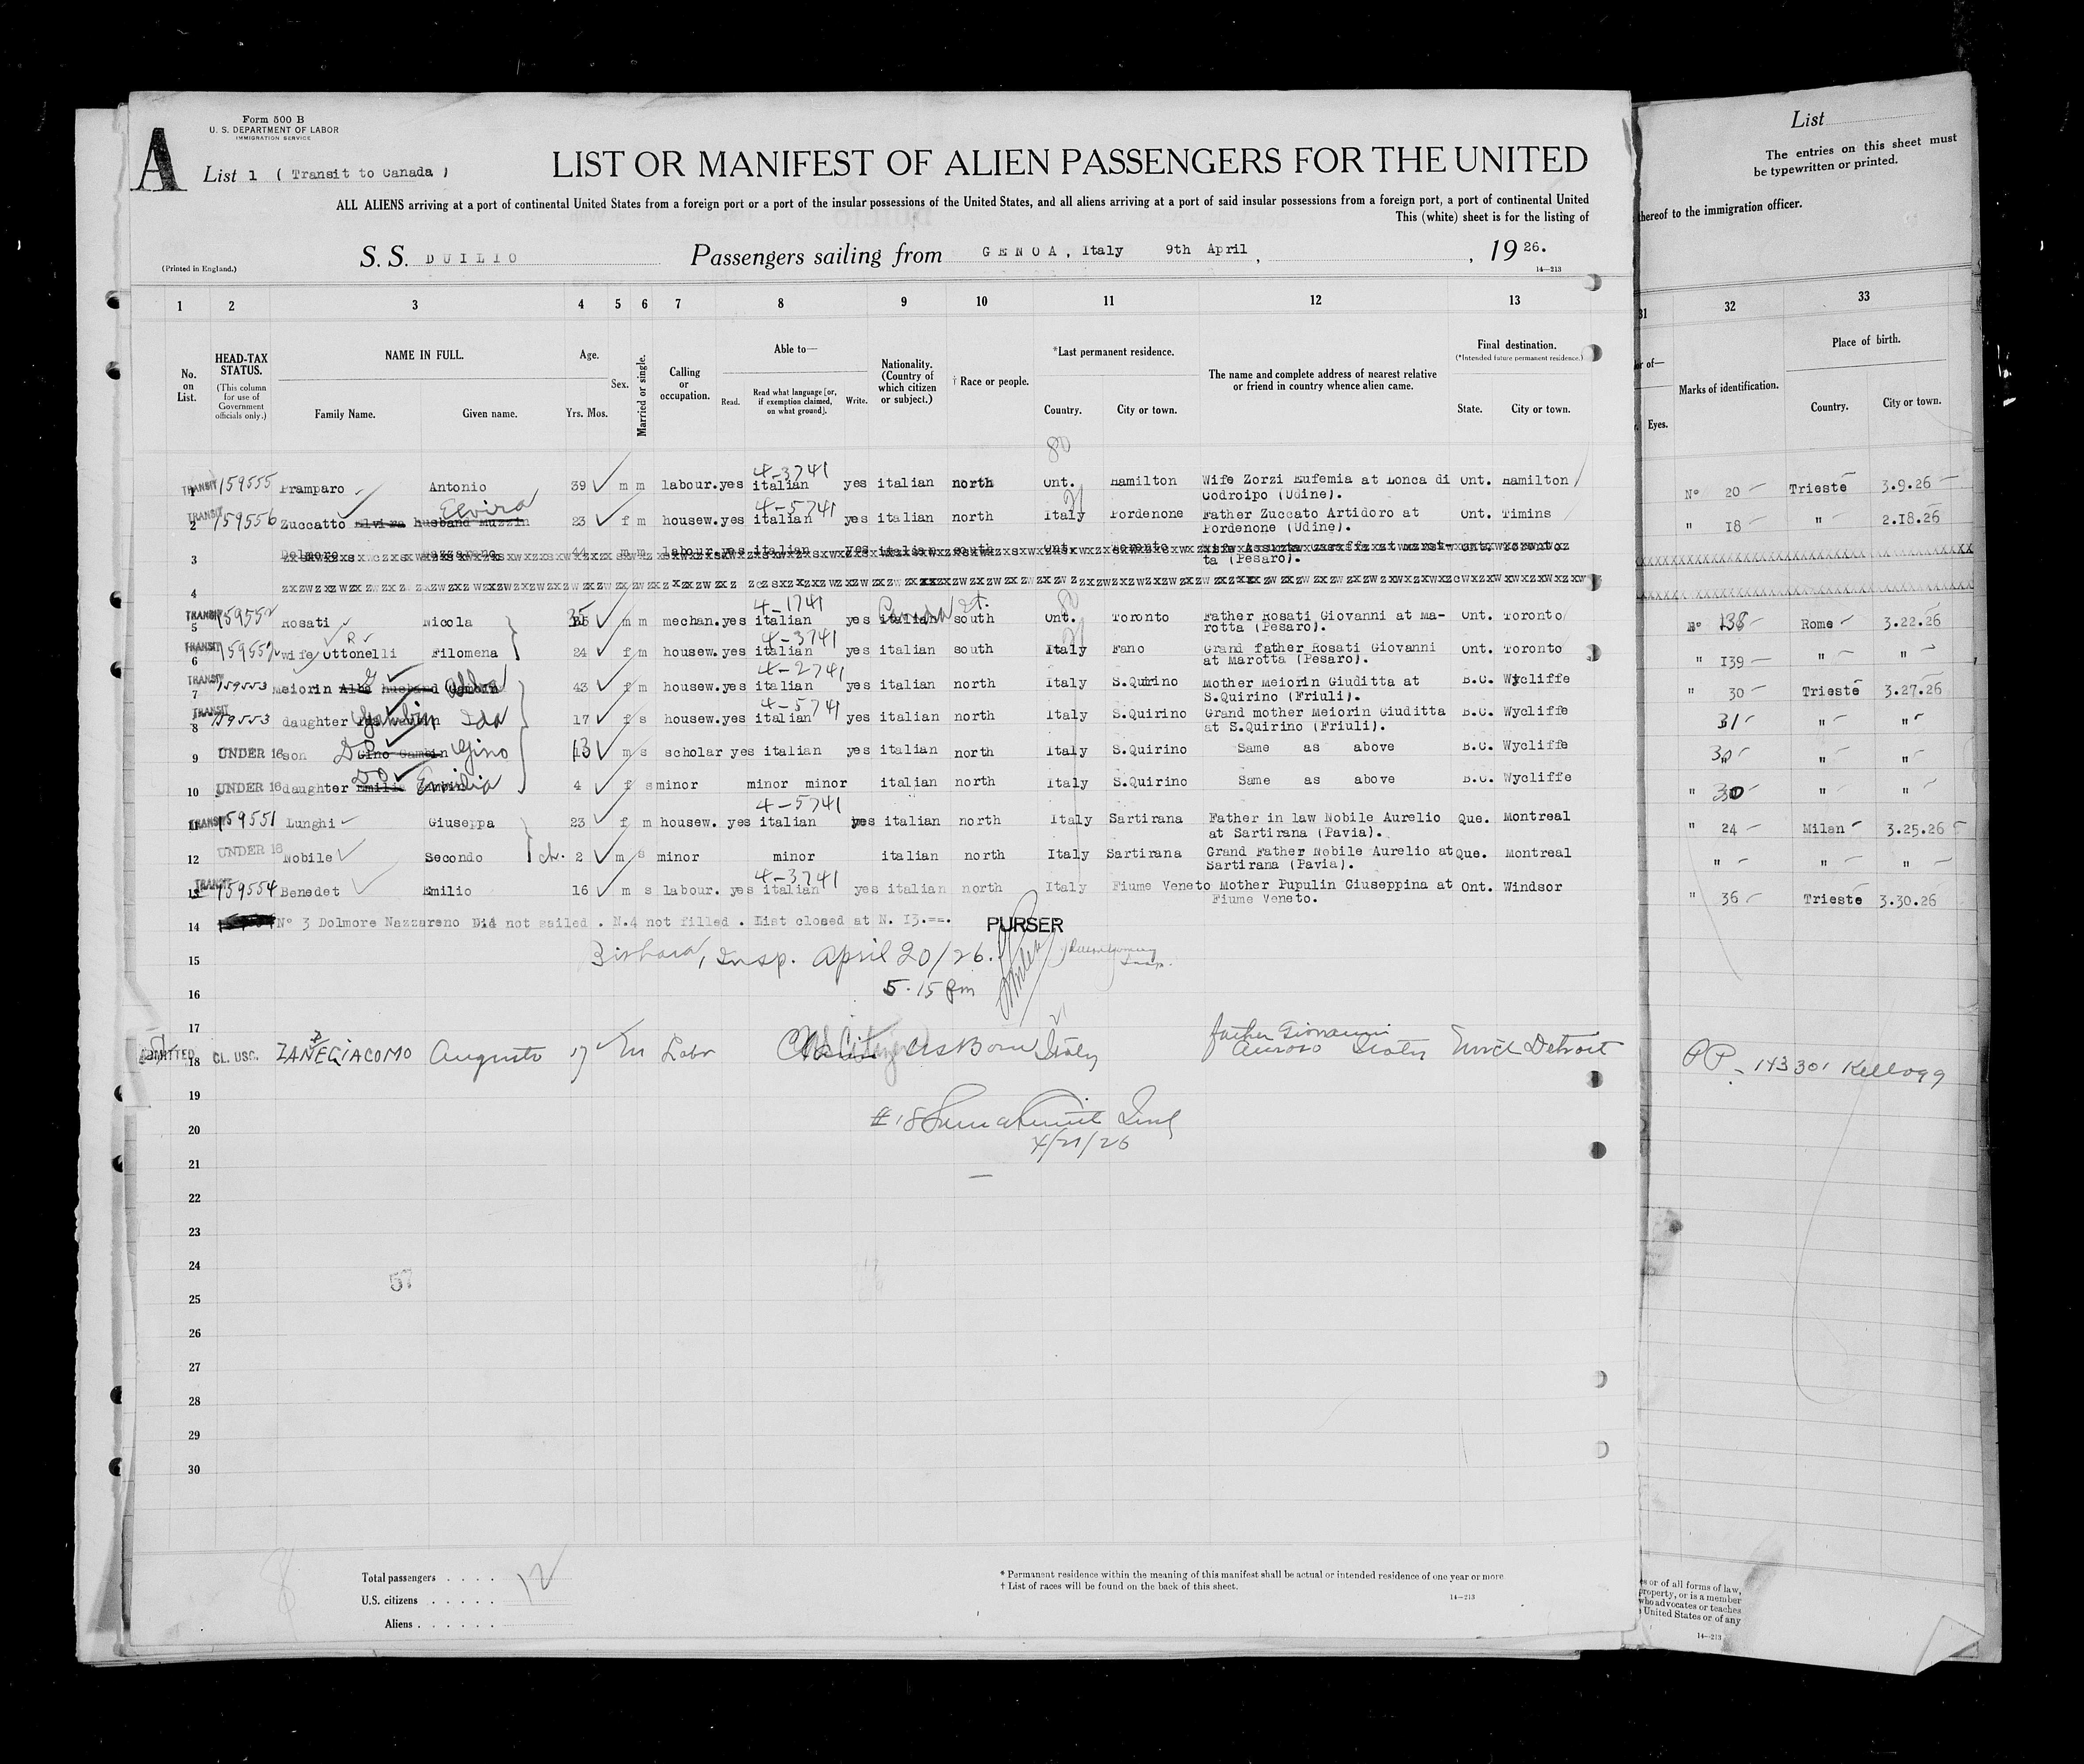 Form 500 B
U. S. DEPARTMENT OF LABOR
IMMIGRATION SERVICE
A
List 1 ( Transit to Canada )
LIST OR MANIFEST OF ALIEN PASSENGERS FOR THE UNITED
ALL ALIENS arriving at a port of continental United States from a foreign port or a port of the insular possessions of the United States, and all aliens arriving at a port of said insular possessions from a foreign port, a port of continental United
This (white) sheet is for the listing of
(Printed in England.)
S. S. DUILIO Passengers sailing from GENOA, Italy 9th April , , 1926.
14—213
1 2 3 4 5 6 7 8 9 10 11 12 13
No. on List.
HEAD-TAX STATUS.
(This column for use of Government officials only.)
NAME IN FULL.
Family Name. Given name.
Age.
Yrs. Mos.
Sex.
Married or single.
Calling or occupation.
Able to—
Read.
Read what language [or, if exemption claimed, on what ground].
Write.
Nationality. (Country of which citizen or subject.)
† Race or people.
*Last permanent residence.
Country. City or town.
The name and complete address of nearest relative or friend in country whence alien came.
Final destination.
(*Intended future permanent residence.)
State. City or town.
80
4-3741
1 TRANSIT 159555 Pramparo Antonio 39 m m labour. yes italian yes italian north Ont. Hamilton Wife Zorzi Eufemia at Lonca di Codroipo (Udine). Ont. Hamilton
Elvira 4-5741 21
2 TRANSIT 159556 Zuccatto Elvira husband Muzzin 23 f m housew. yes italian yes italian north Italy Pordenone Father Zuccato Artidoro at Pordenone (Udine). Ont. Timins
3 Dolmore Nazzareno 44 m m labour. yes italian yes italian south Ont. Toronto ta (Pesaro).
4
4-1741 Canada
5 TRANSIT 159552 Rosati Nicola 35 m m mechan. yes italian yes italian south Ont. Toronto Father Rosati Giovanni at Marotta (Pesaro). Ont. Toronto
R 4-3741 21
6 TRANSIT 159552 wife Uttonelli Filomena 24 f m housew. yes italian yes italian south Italy Fano Grand father Rosati Giovanni at Marotta (Pesaro). Ont. Toronto
G 4-2741
7 TRANSIT 159553 Meiorin Alba husband Gambin Alba 43 f m housew. yes italian yes italian north Italy S.Quirino Mother Meiorin Giuditta at S.Quirino (Friuli). B.C. Wycliffe
4-5741
8 TRANSIT 159553 daughter Gambin Ida 17 f s housew. yes italian yes italian north Italy S.Quirino Grand mother Meiorin Giuditta at S.Quirino (Friuli). B.C. Wycliffe
9 UNDER 16 son Do Gino Gambin Gino 13 m s scholar yes italian yes italian north Italy S.Quirino Same as above B.C. Wycliffe
10 UNDER 16 daughter Do Emilia Emilia 4 f s minor minor minor italian north Italy S.Quirino Same as above B.C. Wycliffe
4-5741
11 TRANSIT 159551 Lunghi Giuseppa 23 f m housew. yes italian yes italian north Italy Sartirana Father in law Nobile Aurelio at Sartirana (Pavia). Que. Montreal
12 UNDER 16 Nobile Secondo ch. 2 m s minor minor italian north Italy Sartirana Grand Father Nobile Aurelio at Sartirana (Pavia). Que. Montreal
4-3741
13 TRANSIT 159554 Benedet Emilio 16 m s labour. yes italian yes italian north Italy Fiume Veneto Mother Pupulin Giuseppina at Fiume Veneto. Ont. Windsor
14 N° 3 Dolmore Nazzareno Did not sailed . N.4 not filled . List closed at N. I3.==. PURSER
15 Insp. April 20/26.
16 5.15 pm
17
18 ADMITTED CL. USC. ZANEGIACOMO Augusto 17 m Labr US Born Italy father Giovanni Italy Mich Detroit
19
20 #18 Insp
4/21/26
21
22
23
24
57
25
26
27
28
29
30
Total passengers . . . . 12
U.S. citizens . . . . .
Aliens . . . . . .
* Permanent residence within the meaning of this manifest shall be actual or intended residence of one year or more.
† List of races will be found on the back of this sheet.
14—213
List
The entries on this sheet must be typewritten or printed.
thereof to the immigration officer.
31 32 33
Eyes.
Marks of identification.
Place of birth.
Country. City or town.
N° 20 Trieste 3.9.26
" 18 " 2.18.26
N° 138 Rome 3.22.26
" 139 " "
" 30 Trieste 3.27.26
31 " "
30 " "
" 30 " "
" 24 Milan 3.25.26
" " "
" 36 Trieste 3.30.26
PP - 143301 Kellogg
es or of all forms of law,
property, or is a member
who advocates or teaches
United States or of any
14—213